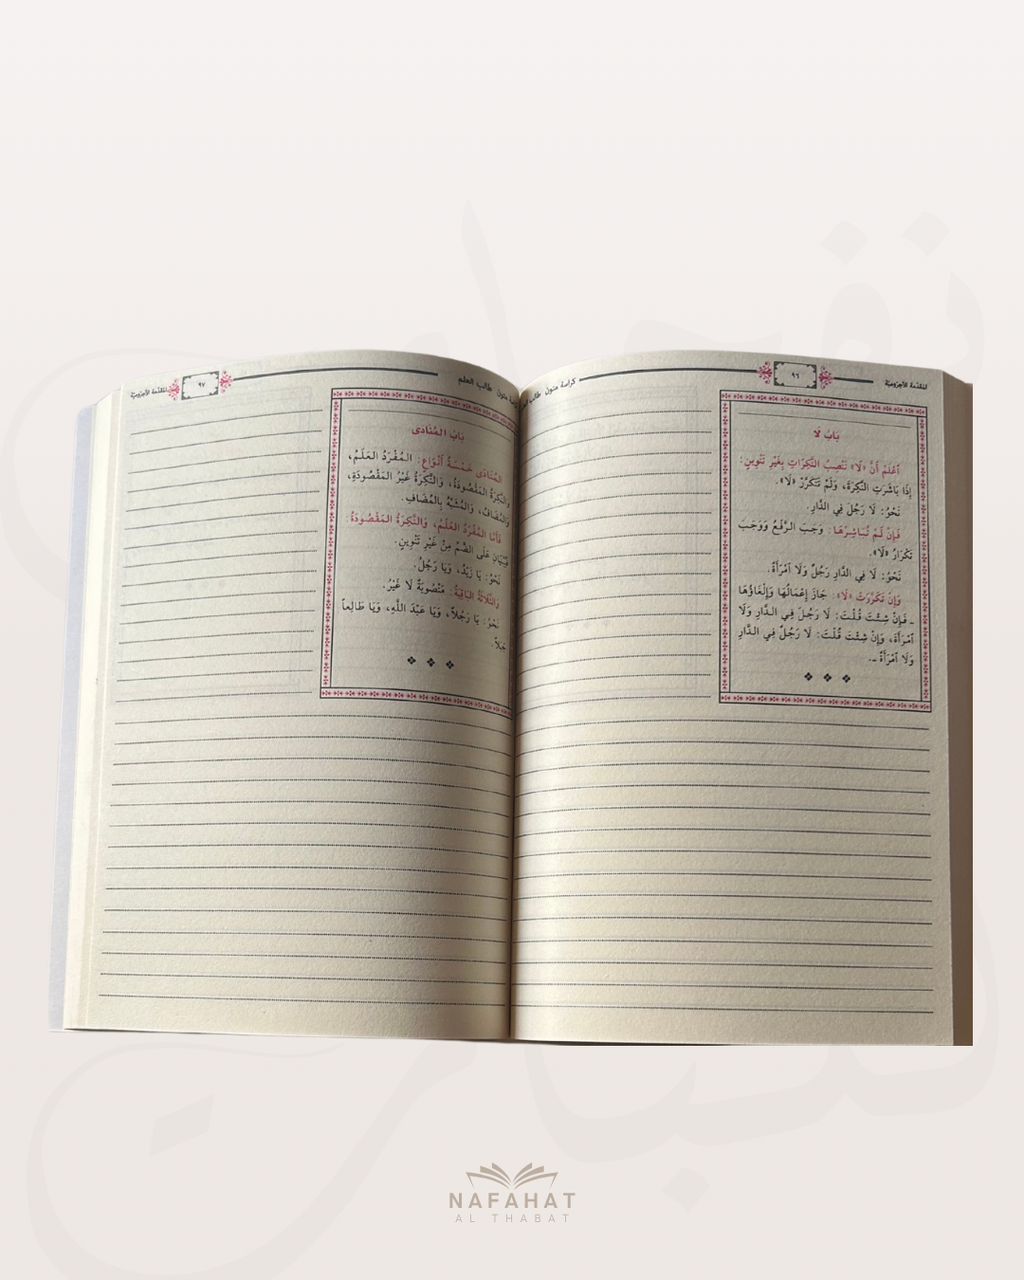 المقدمة الآجرومية
٩٦
كراسة متون طالب العلم
بَابُ لَا
اِعْلَمْ أَنَّ «لَا» تَنْصِبُ النَّكِرَاتِ بِغَيْرِ تَنْوِينٍ:
إِذَا بَاشَرَتِ النَّكِرَةَ، وَلَمْ تَتَكَرَّرْ «لَا».
نَحْوُ: لَا رَجُلَ فِي الدَّارِ.
فَإِنْ لَمْ تُبَاشِرْهَا: وَجَبَ الرَّفْعُ وَوَجَبَ
تَكْرَارُ «لَا».
نَحْوُ: لَا فِي الدَّارِ رَجُلٌ وَلَا ٱمْرَأَةٌ.
وَإِنْ تَكَرَّرَتْ «لَا»: جَازَ إِعْمَالُهَا وَإِلْغَاؤُهَا
ـ فَإِنْ شِئْتَ قُلْتَ: لَا رَجُلَ فِي الدَّارِ وَلَا
ٱمْرَأَةَ، وَإِنْ شِئْتَ قُلْتَ: لَا رَجُلٌ فِي الدَّارِ
وَلَا ٱمْرَأَةٌ ـ.
متون طالب العلم
٩٧
المقدمة الآجرومية
بَابُ المُنَادَى
المُنَادَى خَمْسَةُ أَنْوَاعٍ: المُفْرَدُ العَلَمُ،
وَالنَّكِرَةُ المَقْصُودَةُ، وَالنَّكِرَةُ غَيْرُ المَقْصُودَةِ،
وَالمُضَافُ، وَالمُشَبَّهُ بِالمُضَافِ.
فَأَمَّا المُفْرَدُ العَلَمُ، وَالنَّكِرَةُ المَقْصُودَةُ:
فَيُبْنَيَانِ عَلَى الضَّمِّ مِنْ غَيْرِ تَنْوِينٍ.
نَحْوُ: يَا زَيْدُ، وَيَا رَجُلُ.
وَالثَّلَاثَةُ البَاقِيَةُ: مَنْصُوبَةٌ لَا غَيْرُ.
نَحْوُ: يَا رَجُلاً، وَيَا عَبْدَ اللَّهِ، وَيَا طَالِعاً
جَبَلاً.
NAFAHAT
AL THABAT